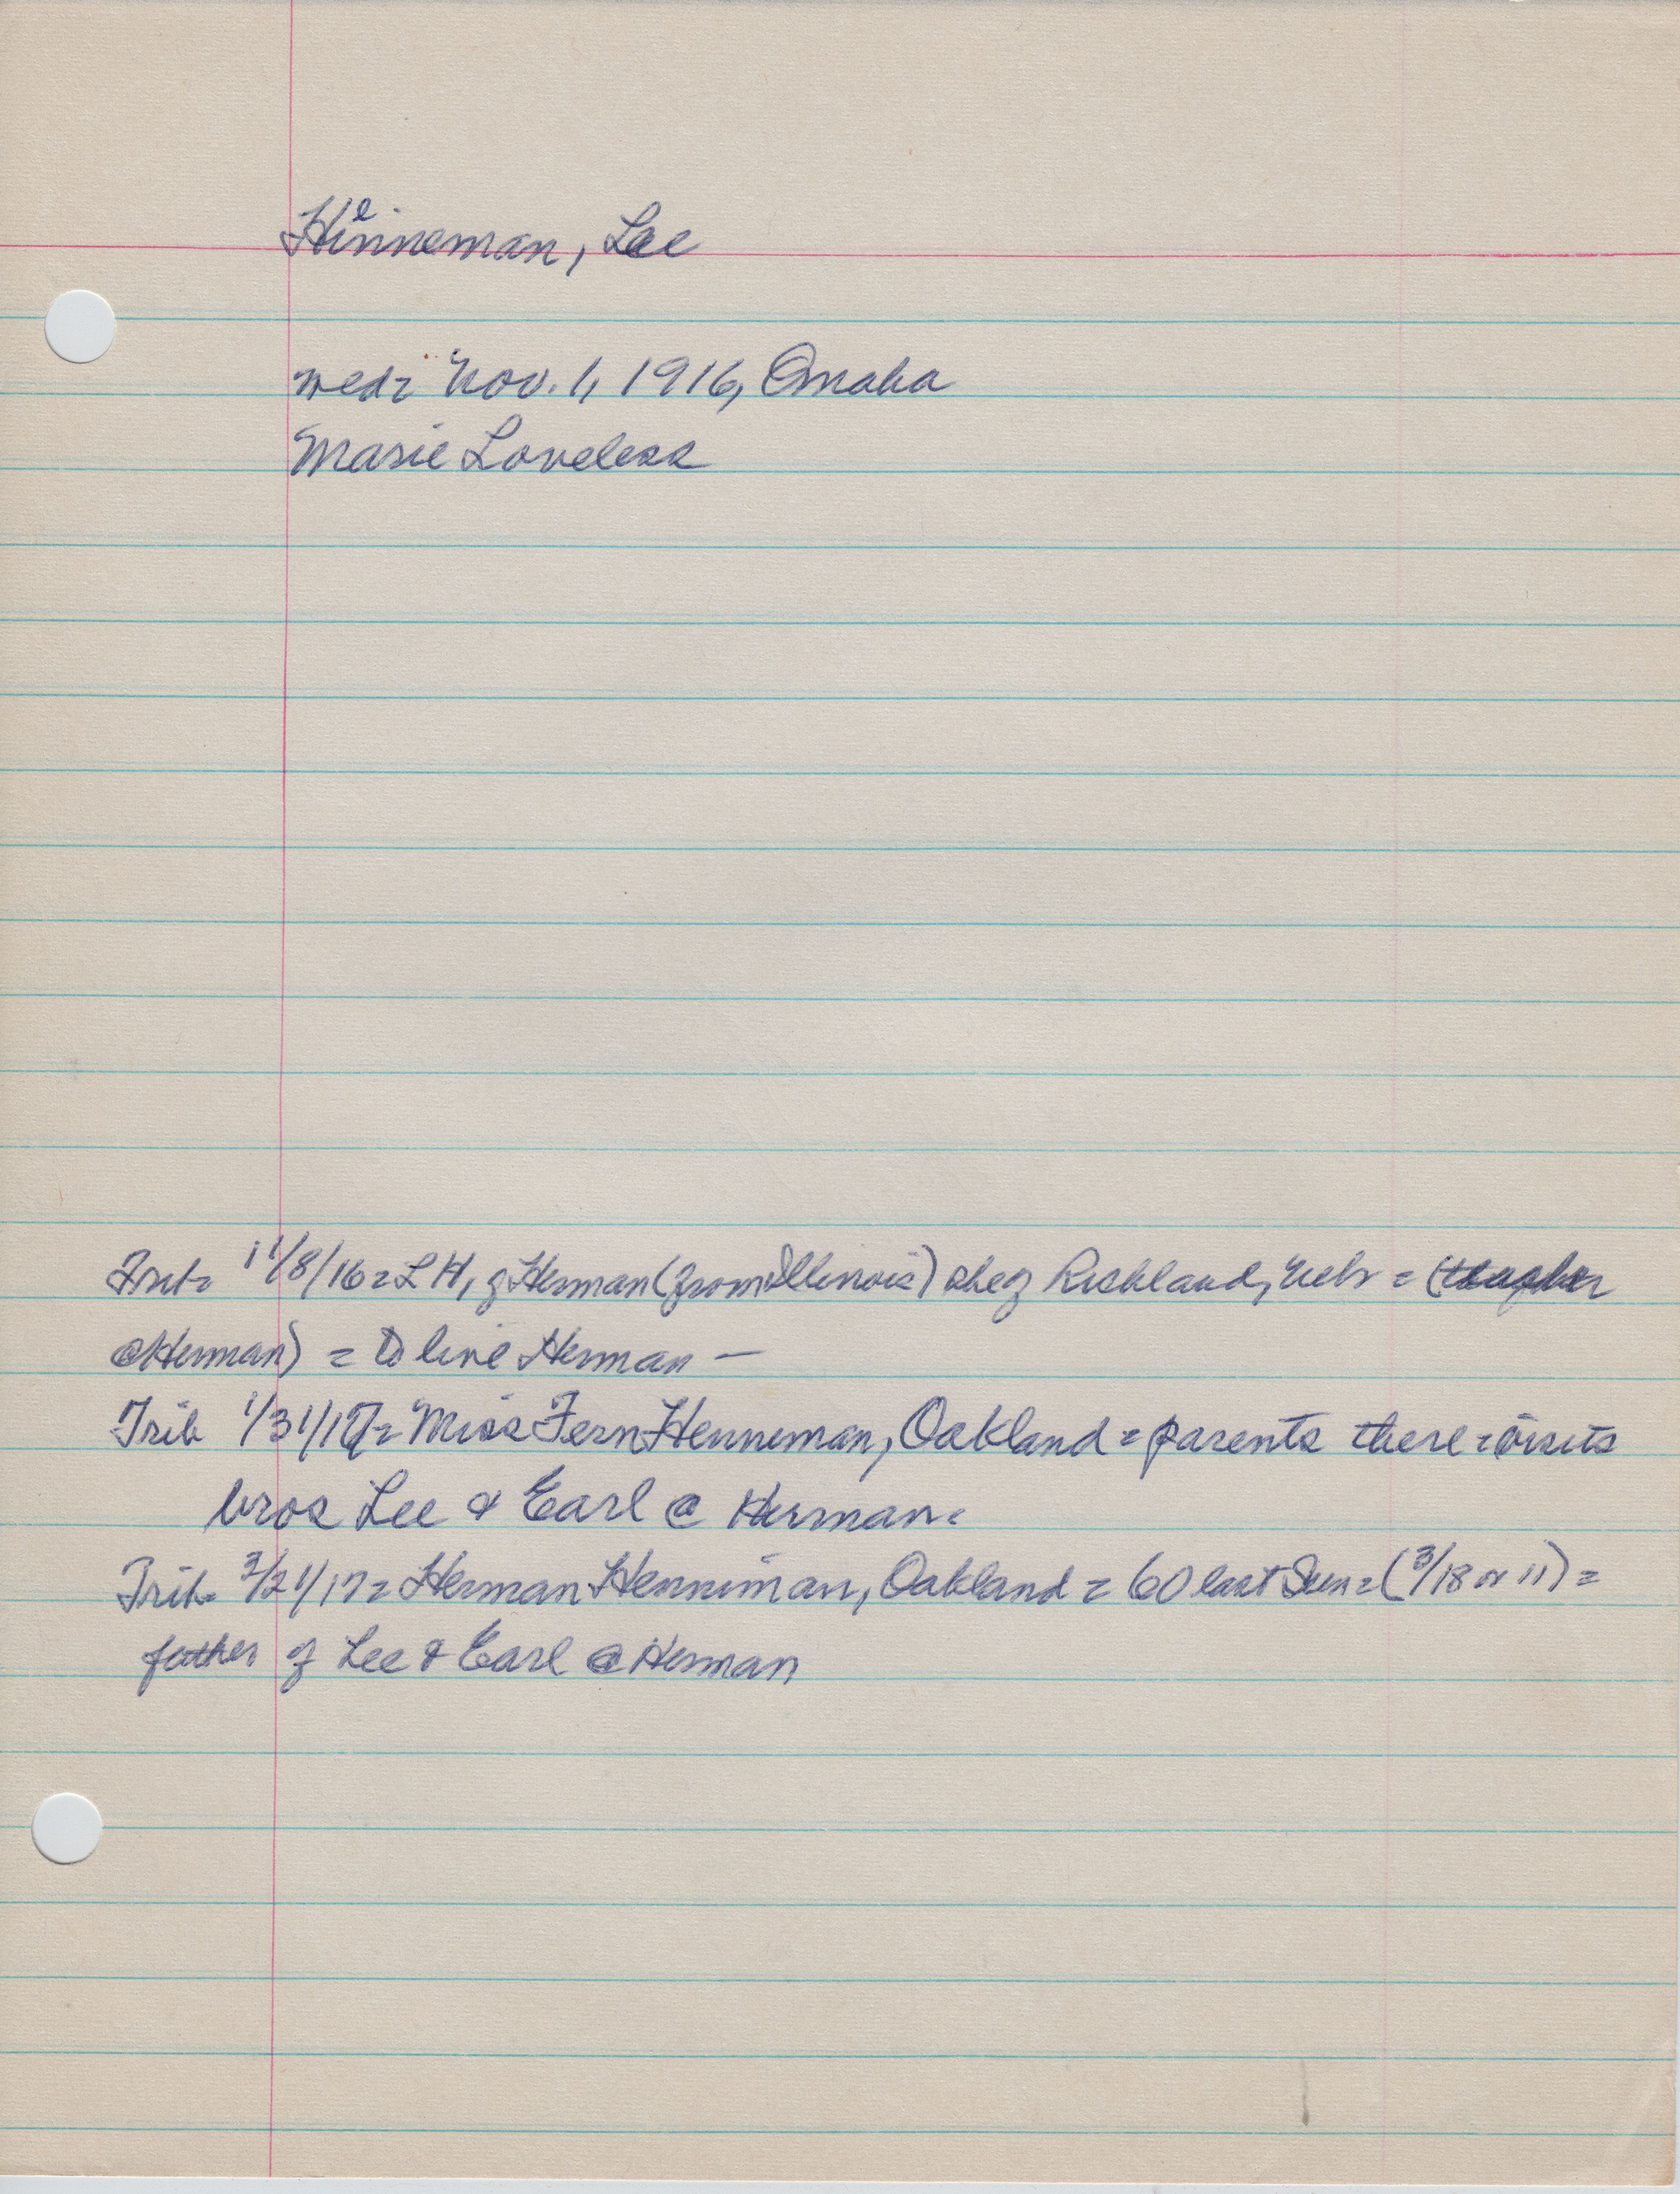 Hinneman, Lee
e
wed= Nov. 1, 1916, Omaha
Marie Loveless
11/8/16= L H, of Herman (from Illinois) she of Richland, Nebr = (teacher
@ Herman) = to live Herman —
Trib 1/31/17= Miss Fern Henneman, Oakland = parents there = visits
bros Lee & Earl @ Herman.
Trib= 3/21/17= Herman Henniman, Oakland = 60 last Sun= (3/18 or 11) =
father of Lee & Earl @ Herman